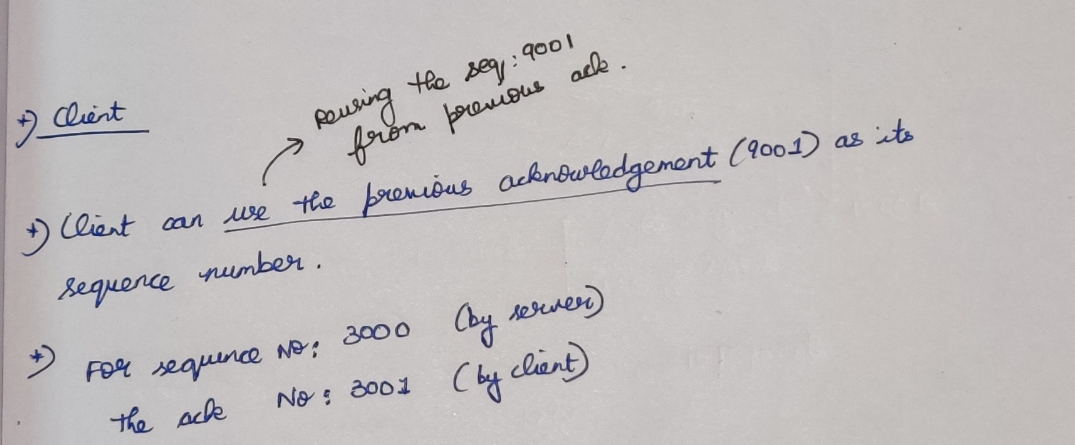 *) Client
Reusing the seq: 9001
from previous ack.
*) Client can use the previous acknowledgement (9001) as its
sequence number.
*) For sequence No: 3000 (by server)
the ack No: 3001 (by client)